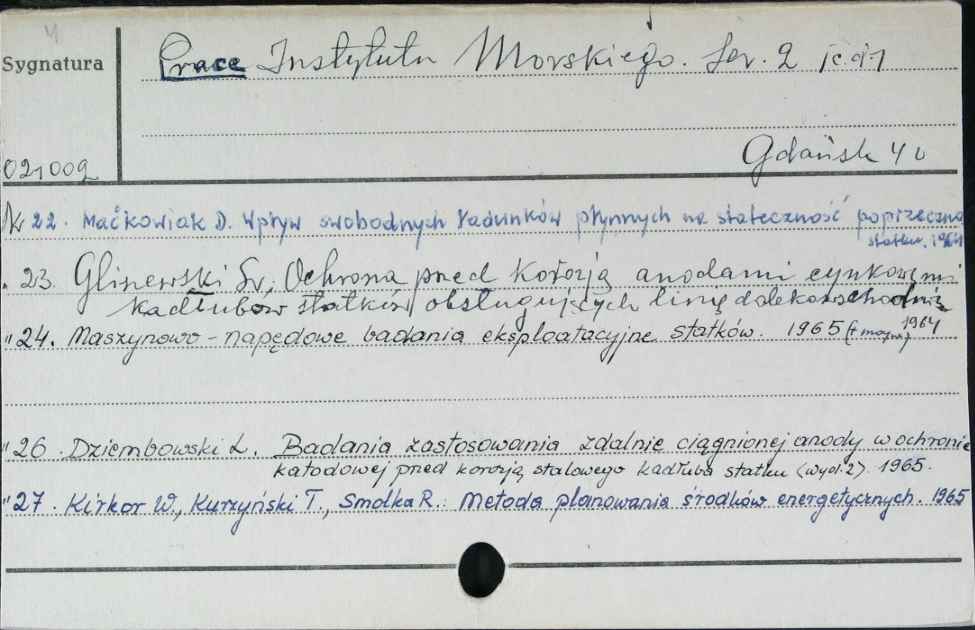 4
Sygnatura
Prace Instytutu Morskiego. Ser. 2 /c.d./
Gdańsk 40
021009
Nr 22. Maćkowiak D. Wpływ swobodnych ładunków płynnych na stateczność poprzeczną
statku. 1964
" 23. Glinewski Św. Ochrona przed korozją anodami cynkowymi
kadłubów statków obsługujących linię dalekowschodnią
1964
" 24. Maszynowo-napędowe badania eksploatacyjne statków. 1965
" 26. Dziembowski L. Badania zastosowania zdalnie ciągnionej anody w ochronie
katodowej przed korozją stalowego kadłuba statku (wyd. 2). 1965.
" 27. Kirkor W., Kurzyński T., Smolka R.: Metoda planowania środków energetycznych. 1965